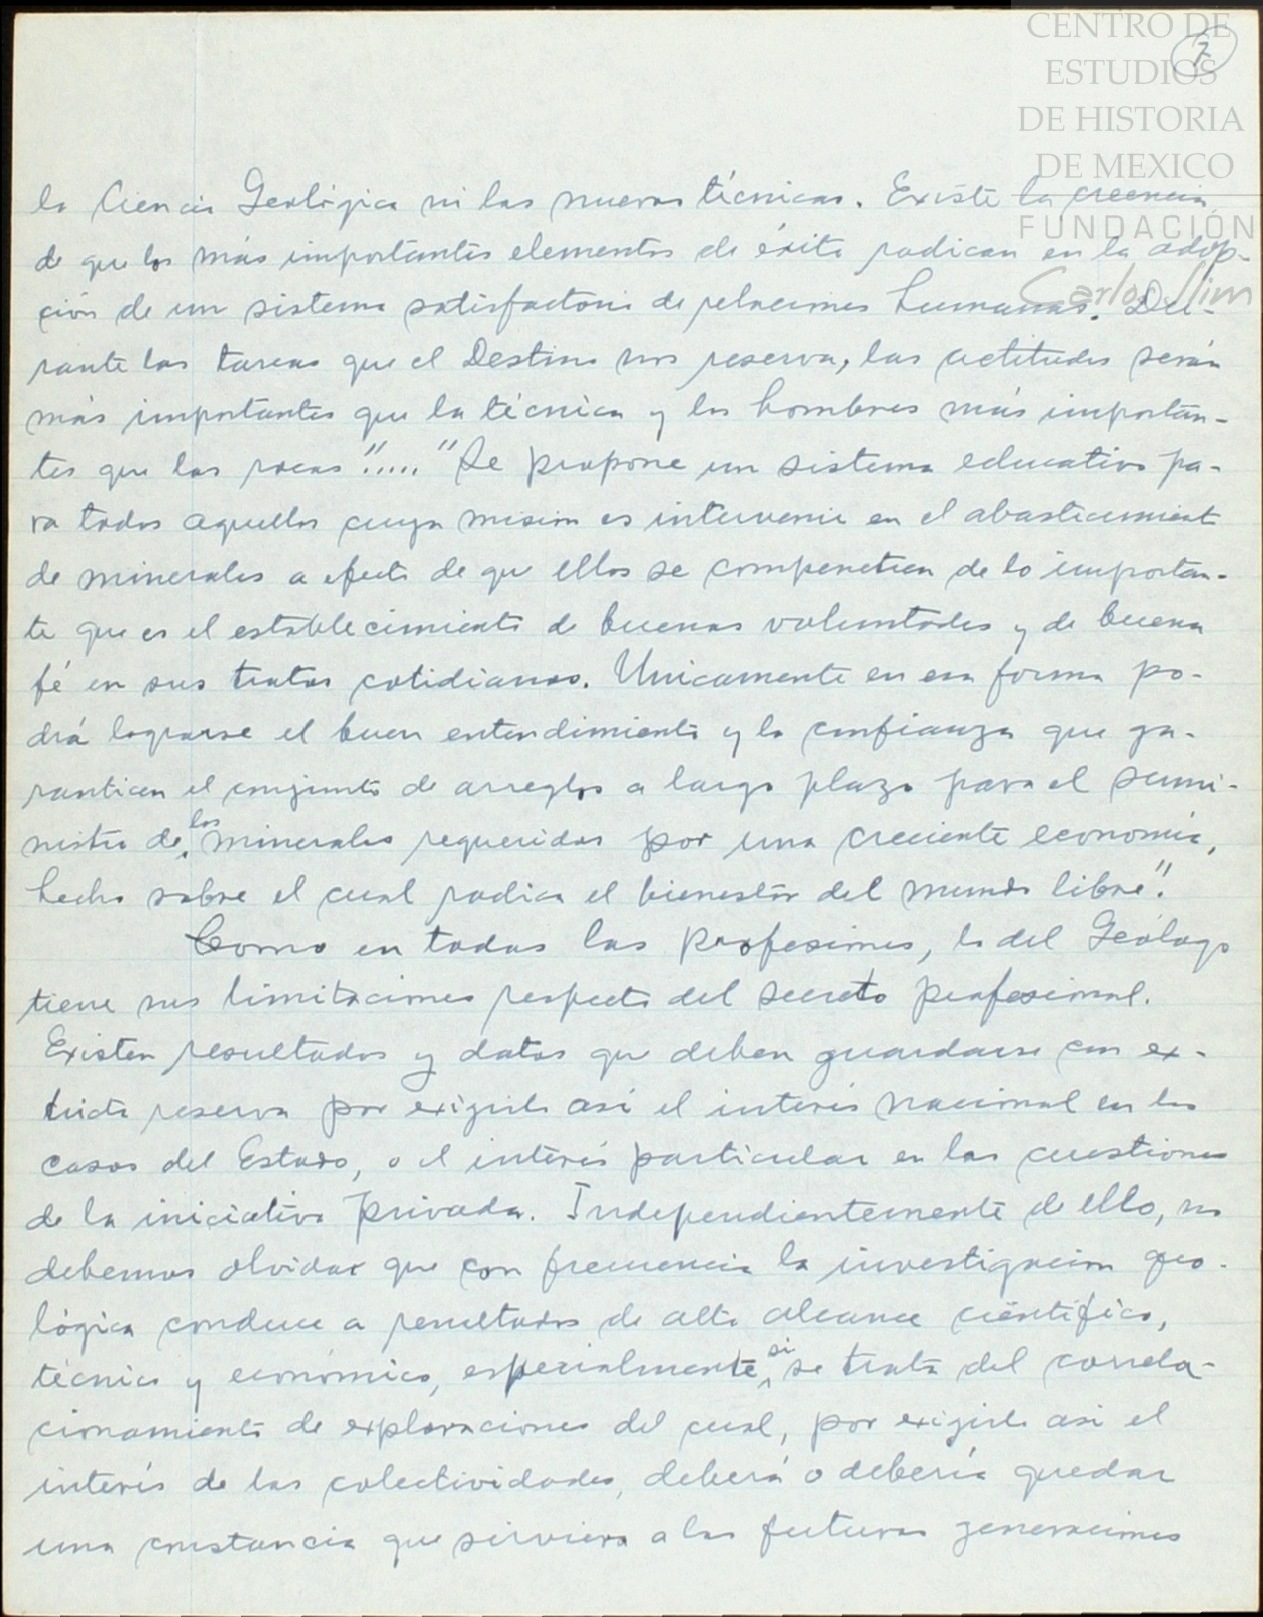 CENTRO DE
ESTUDIOS
DE HISTORIA
DE MEXICO
FUNDACIÓN
Carlos Slim
7
la Ciencia Geológica ni las nuevas técnicas. Existe la creencia
de que los más importantes elementos de éxito radican en la adop-
ción de un sistema satisfactorio de relaciones humanas. Du-
rante las tareas que el Destino nos reserva, las actitudes serán
más importantes que la técnica y los hombres más importan-
tes que las rocas"....."Se propone un sistema educativo pa-
ra todos aquellos cuya mision es intervenir en el abastecimiento
de minerales a efecto de que ellos se compenetren de lo importan-
te que es el establecimiento de buenas voluntades y de buena
fé en sus tratos cotidianos. Unicamente en esa forma po-
drá lograrse el buen entendimiento y la confianza que ga-
ranticen el conjunto de arreglos a largo plazo para el sumi-
nistro de los minerales requeridos por una creciente economía,
hecho sobre el cual radica el bienestar del mundo libre".
Como en todas las profesiones, la del Geólogo
tiene sus limitaciones respecto del secreto profesional.
Existen resultados y datos que deben guardarse con ex-
tricta reserva por exigirlo asi el interés nacional en los
casos del Estado, o el interés particular en las cuestiones
de la iniciativa privada. Independientemente de ello, no
debemos olvidar que con frecuencia la investigacion geo-
lógica conduce a resultados de alto alcance científico,
técnico y económico, especialmente si se trata del correla-
cionamiento de exploraciones del cual, por exigirlo asi el
interés de las colectividades, deberá o debería quedar
una constancia que serviera a las futuras generaciones